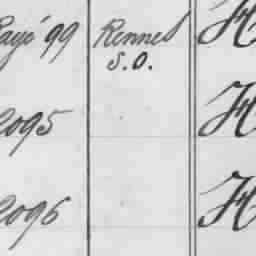 Page '99 Rennes H
S.O.
2095 H
2096 H